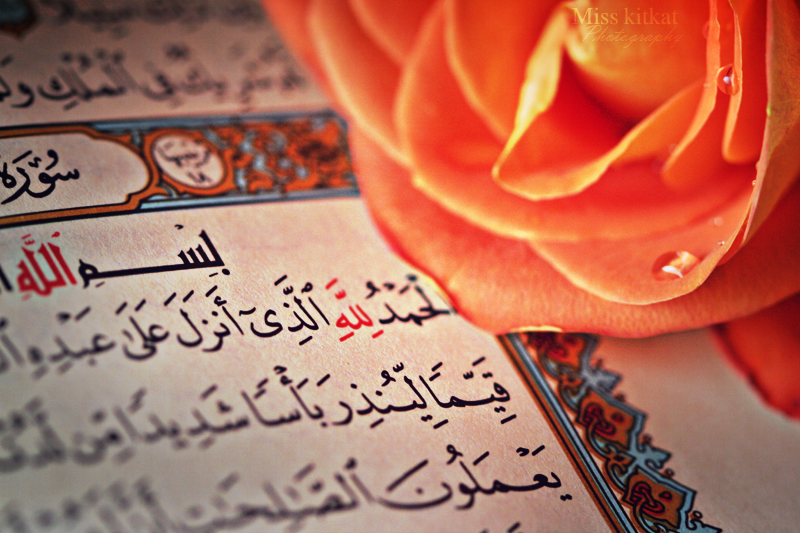 Miss kitkat
Photography
فِى ٱلْمُلْكِ وَلَمْ
سُورَةُ
ترتيبها
١٨
بِسْمِ ٱللَّهِ
ٱلْحَمْدُ لِلَّهِ ٱلَّذِىٓ أَنزَلَ عَلَىٰ عَبْدِهِ
قَيِّمًا لِّيُنذِرَ بَأْسًا شَدِيدًا مِّن لَّدُنْهُ
يَعْمَلُونَ ٱلصَّٰلِحَٰتِ